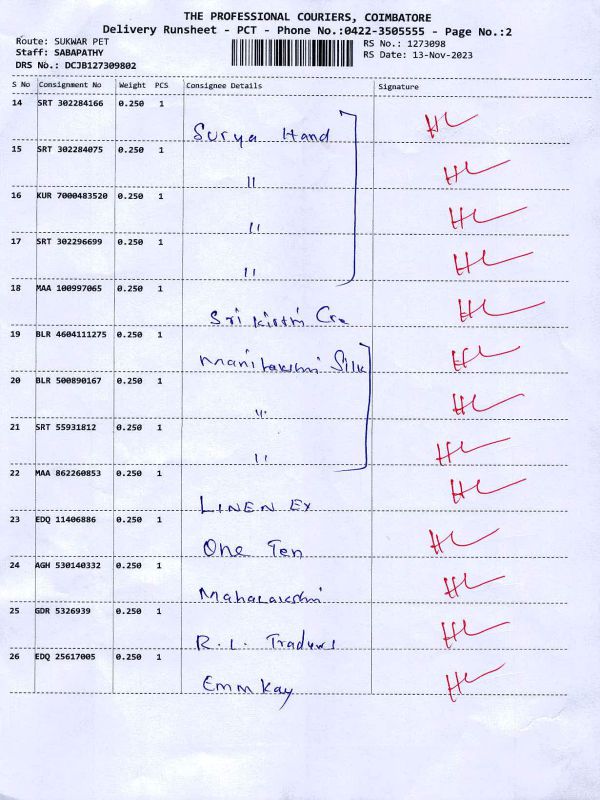 THE PROFESSIONAL COURIERS, COIMBATORE
Delivery Runsheet - PCT - Phone No.:0422-3505555 - Page No.:2
Route: SUKWAR PET
Staff: SABAPATHY
DRS No.: DCJB127309802
RS No.: 1273098
RS Date: 13-Nov-2023
S No Consignment No Weight PCS Consignee Details Signature
14 SRT 302284166 0.250 1
Surya Hand
15 SRT 302284075 0.250 1
"
16 KUR 7000483520 0.250 1
"
17 SRT 302296699 0.250 1
"
18 MAA 100997065 0.250 1
Sri
19 BLR 4604111275 0.250 1
Silk
20 BLR 500890167 0.250 1
"
21 SRT 55931812 0.250 1
"
22 MAA 862260853 0.250 1
LINEN EX
23 EDQ 11406886 0.250 1
One Ten
24 AGH 530140332 0.250 1
Mahalakshmi
25 GDR 5326939 0.250 1
R. L.
26 EDQ 25617005 0.250 1
Emmkay